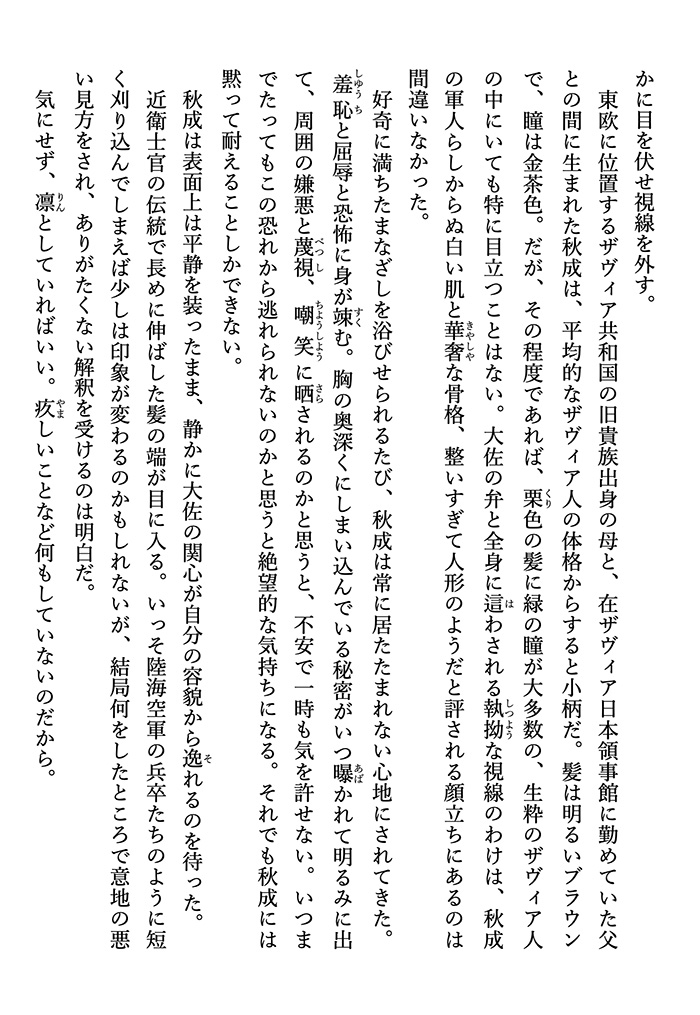 かに目を伏せ視線を外す。
　東欧に位置するザヴィア共和国の旧貴族出身の母と、在ザヴィア日本領事館に勤めていた父
との間に生まれた秋成は、平均的なザヴィア人の体格からすると小柄だ。髪は明るいブラウン
で、瞳は金茶色。だが、その程度であれば、栗色の髪に緑の瞳が大多数の、生粋のザヴィア人
の中にいても特に目立つことはない。大佐の弁と全身に這わされる執拗な視線のわけは、秋成
の軍人らしからぬ白い肌と華奢な骨格、整いすぎて人形のようだと評される顔立ちにあるのは
間違いなかった。
　好奇に満ちたまなざしを浴びせられるたび、秋成は常に居たたまれない心地にされてきた。
羞恥と屈辱と恐怖に身が竦む。胸の奥深くにしまい込んでいる秘密がいつ曝かれて明るみに出
て、周囲の嫌悪と蔑視、嘲笑に晒されるのかと思うと、不安で一時も気を許せない。いつま
でたってもこの恐れから逃れられないのかと思うと絶望的な気持ちになる。それでも秋成には
黙って耐えることしかできない。
　秋成は表面上は平静を装ったまま、静かに大佐の関心が自分の容貌から逸れるのを待った。
　近衛士官の伝統で長めに伸ばした髪の端が目に入る。いっそ陸海空軍の兵卒たちのように短
く刈り込んでしまえば少しは印象が変わるのかもしれないが、結局何をしたところで意地の悪
い見方をされ、ありがたくない解釈を受けるのは明白だ。
　気にせず、凛としていればいい。疚しいことなど何もしていないのだから。